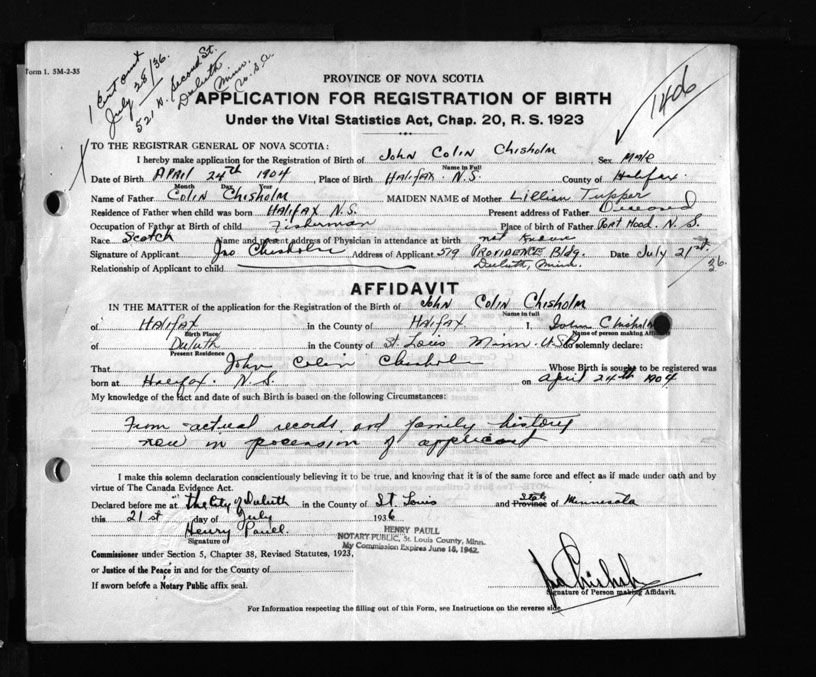 Form 1. 5M-2-35
1 Cert out
July 28/36.
521 W. Second St.
Duluth
Minn.
U.S.A.
1406
PROVINCE OF NOVA SCOTIA
APPLICATION FOR REGISTRATION OF BIRTH
Under the Vital Statistics Act, Chap. 20, R. S. 1923
TO THE REGISTRAR GENERAL OF NOVA SCOTIA:
I hereby make application for the Registration of Birth of John Colin Chisholm Sex Male
Name in Full
Date of Birth APRIL 24th 1904 Place of Birth HALIFAX. N.S. County of Halifax.
Month Day Year
Name of Father Colin Chisholm MAIDEN NAME of Mother Lillian Tupper
Residence of Father when child was born HALIFAX N.S. Present address of Father Deceased
Occupation of Father at Birth of child Fisherman Place of birth of Father Port Hood. N.S.
Race Scotch Name and present address of Physician in attendance at birth not known
Signature of Applicant Jno Chisholm Address of Applicant 579 PROVIDENCE Bldg. Date July 21st. 36.
Relationship of Applicant to child Duluth, Minn.
AFFIDAVIT
IN THE MATTER of the application for the Registration of the Birth of John Colin Chisholm
Name in full
of HALIFAX in the County of HALIFAX. I. John Chisholm
Birth Place Name of person making Affidavit
of Duluth in the County of St. Louis Minn. USA do solemnly declare:
Present Residence
That John Colin Chisholm Whose Birth is sought to be registered was
born at Halifax. N.S. on April 24th 1904
My knowledge of the fact and date of such Birth is based on the following Circumstances:
From actual records and family history
now in posession of applicant
I make this solemn declaration conscientiously believing it to be true, and knowing that it is of the same force and effect as if made under oath and by
virtue of The Canada Evidence Act.
Declared before me at the City of Duluth in the County of St. Louis and Province State of Minnesota
this 21st day of July 1936
Henry Paull.
Signature of
HENRY PAULL
NOTARY PUBLIC, St. Louis County, Minn.
My Commission Expires June 18, 1942.
Commissioner under Section 5, Chapter 38, Revised Statutes, 1923,
or Justice of the Peace in and for the County of
If sworn before a Notary Public affix seal.
Jno Chisholm
Signature of Person making Affidavit.
For Information respecting the filling out of this Form, see Instructions on the reverse side.